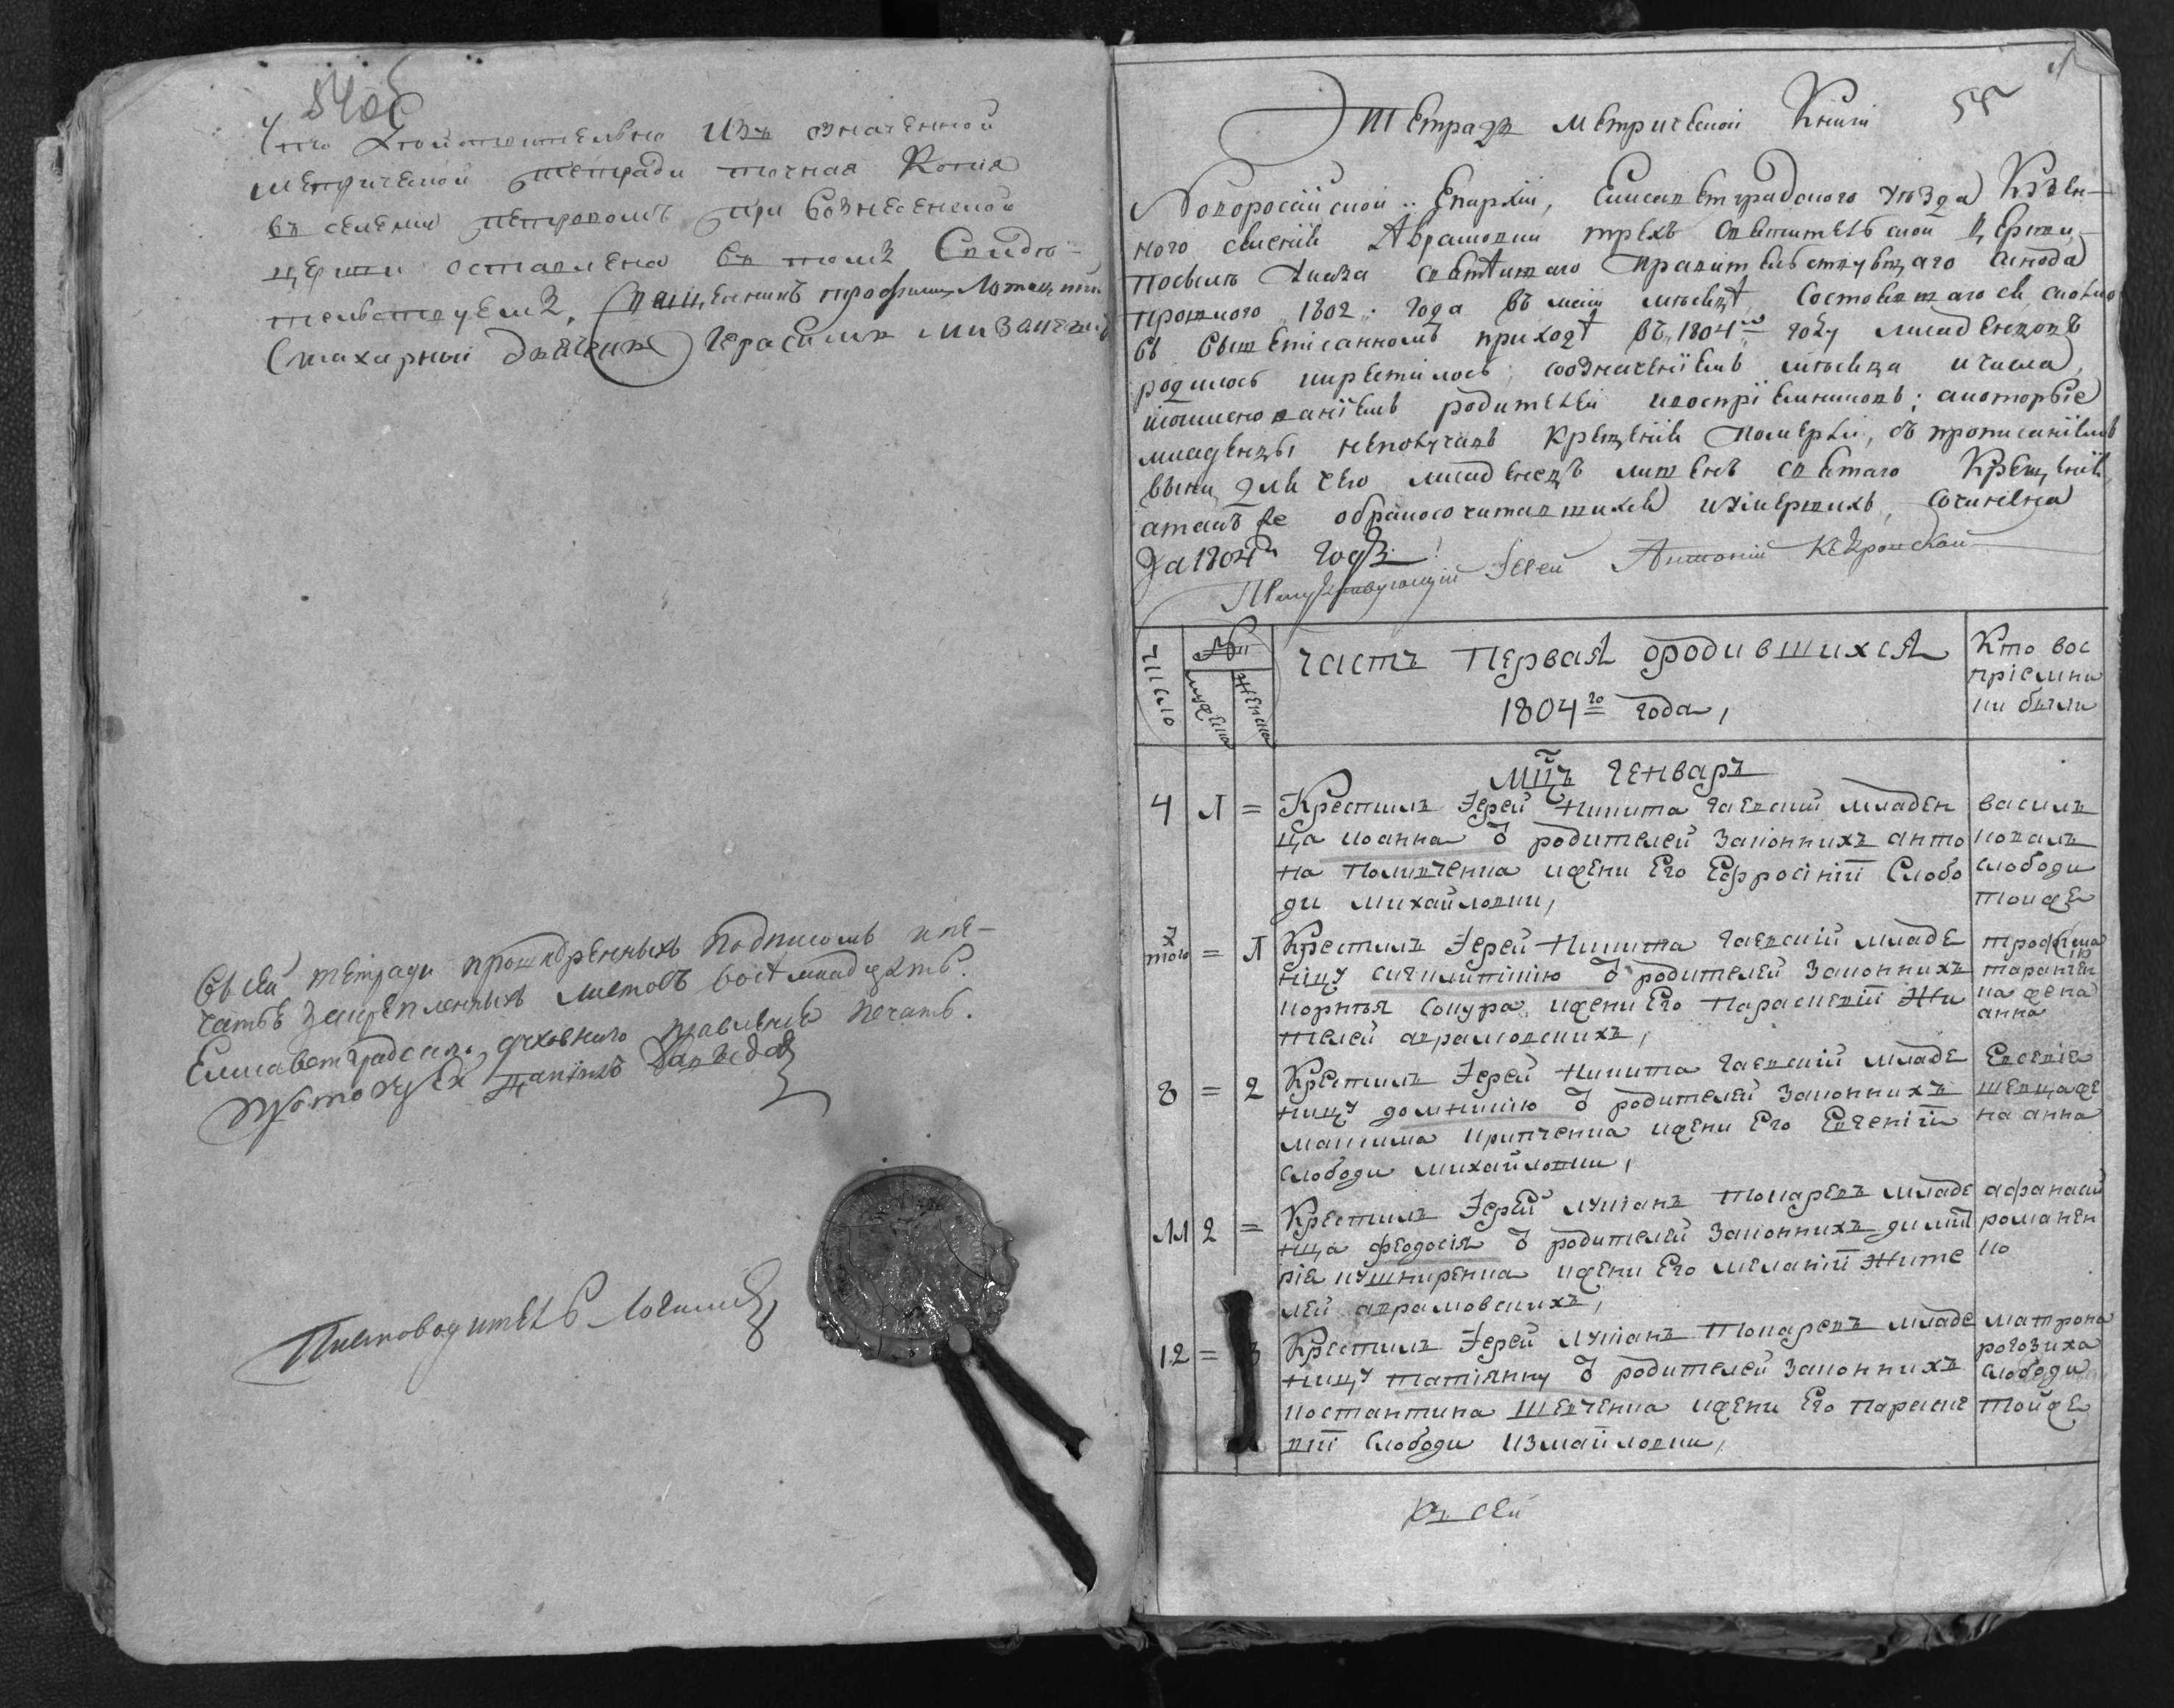 54об
Что действительно изъ означенной
метрической тетради точная Копія
въ селении петровомъ при Вознесенской
церкви оставлена въ томъ Свидѣ-
телствуемъ. Священникъ трофимъ
Стихарный дьячекъ Герасимъ
Въ сей тетради прошнуренныхъ подписомъ и пе-
чатью закрепленныхъ листовъ восемнадцать.
Елисаветградскаго духовнаго правленія печать.
Протоіерей Даніилъ
Писмоводитель
55
Тетрадь метрической Книги
Новоросийской Епархіи, Елисаветградского уѣзда Казен-
ного селенія Аврамовки трехъ святительской Церкви,
посылѣ Указа святѣйшаго правительствующаго синода
прошлого 1802 года въ маіи месяцѣ состоявшагося сколко
въ вышеписанномъ приходѣ въ 1804мъ году младенцовъ
родилось икрестилось, созначеніемъ мѣсяца ичисла,
имяннованіемъ родителей ивоспріемниковъ; акоторые
младенцы неполучивъ Крещенія Померли, съ прописаніемъ
вины, для чего младенецъ лишенъ святаго Крещенія,
атакъ же обракосочитавшихся иумершихъ, Сочинена
За 1804й годъ
Іерей Антоній
число
№
мужеска
женска
часть Первая ородившихся
1804го года,
Кто вос
пріемни
ки были
Мцъ Генваръ
4 1 =
Крестилъ Іерей Никита Гаевский младен
ца иоанна ѿ родителей Законнихъ анто
на Поливченка ижени Его Ефросініи Слобо
ди михайловки,
василъ
ковалъ
слободи
тоиже
тогож = 1
Крестилъ Іерей Никита Гаевский младе
ницу сиглитикію ѿ родителей Законнихъ
корнѣя Сокура ижени Его Параскевіи Жи
телей аврамовскихъ,
трофима
таранен
ка жена
анна
8 = 2
Крестилъ Іерей Никита Гаевский младе
ницу домникию ѿ родителей Законнихъ
максима Крипченка ижени Его Евгеніи
слободи михайловки,
Евсевіе
шевцаже
на анна
11 2 =
Крестилъ Іерей лукіанъ Токаревъ младе
нца феодосія ѿ родителей Законнихъ димит
ріе кушниренка ижени Его меланіи Жите
лей аврамовскихъ,
афанасий
романен
ко
12 = 3
Крестилъ Іерей лукіанъ Токаревъ младе
ницу татіянну ѿ родителей Законнихъ
костантина Шевченка ижени Его параске
віи Слободи измаиловки,
матрона
рогозиха
слободи
Тойже
Къ сей